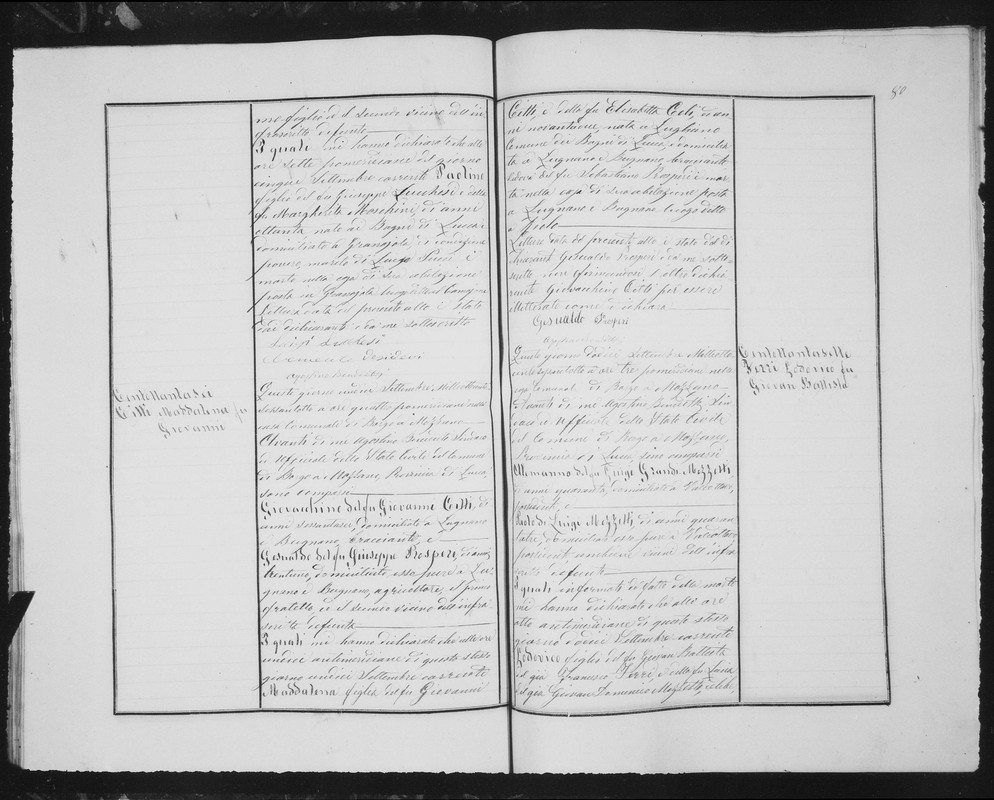 mo figlio e il secondo vicino del in-
frascritto defunto
I quali mi hanno dichiarato che alle
ore sette pomeridiane del giorno
cinque Settembre corrente Paolino
figlio del fu Giuseppe Lucchesi e della
fu Margherita Moschini, di anni
ottanta nato ai Bagni di Lucca e
domiciliato a Granajola,
marito di Luisa Pucci è
morto nella casa di sua abitazione
posta in Granajola luogo detto
Lettura data del presente atto è stato
dai dichiaranti e da me sottoscritto
Luigi Lucchesi
Clemente Desideri
Agostino Benedetti
Centottantasei
Citti Maddalena fu
Giovanni
Questo giorno undici Settembre Milleottocento
sessantotto a ore quattro pomeridiane nella
casa Comunale di Borgo a Mozzano
Avanti di me Agostino Benedetti Sindaco
ed Uffiziale dello Stato Civile del Comune
di Borgo a Mozzano, Provincia di Lucca,
sono comparsi
Giovacchino del fu Giovanni Citti, di
anni sessantasei, domiciliato a Lugnano
e Bugnano, bracciante, e
Gesualdo del fu Giuseppe Prosperi, di anni
trentuno, domiciliato esso pure a Lu-
gnano e Bugnano, agricoltore, il primo
fratello, e il secondo vicino dell'infra-
scritta defunta
I quali mi hanno dichiarato che alle ore
undici antimeridiane di questo stesso
giorno undici Settembre corrente
Maddalena figlia del fu Giovanni
80
Citti, e della fu Elisabetta Coli, di an-
ni novantanove, nata a Lugliano
Comune dei Bagni di Lucca, domicilia-
ta a Lugnano e Bugnano,
vedova del fu Sebastiano Prosperi è mor-
ta nella casa di sua abitazione posta
a Lugnano e Bugnano luogo detto
Lettura data del presente atto è stato dal di-
chiarante Gesualdo Prosperi e da me sotto-
scritto, non firmandosi l'altro dichia-
rante Giovacchino Citti per essere
illetterato come dichiara
Gesualdo Prosperi
Agostino Benedetti
Questo giorno dodici Settembre Milleotto-
centosessantotto a ore tre pomeridiane nella
casa Comunale di Borgo a Mozzano
Avanti di me Agostino Benedetti Sin-
daco ed Uffiziale dello Stato Civile
del Comune di Borgo a Mozzano,
Provincia di Lucca, sono comparsi
Alemanno del fu Luigi Grandi Mozzetti
di anni quaranta, domiciliato a Valdottavo,
possidente, e
di Luigi Mozzetti, di anni quaran-
domiciliato esso pure a Valdottavo,
possidente, ambedue vicini dell'infra-
scritto defunto
I quali informati di fatto della morte
mi hanno dichiarato che alle ore
otto antimeridiane di questo stesso
giorno dodici Settembre corrente
Lodovico figlio del fu Giovan Battista
del già Francesco Ferri, e della fu Luisa
del già Giovan Domenico
Centottantasette
Ferri Lodovico fu
Giovan Battista